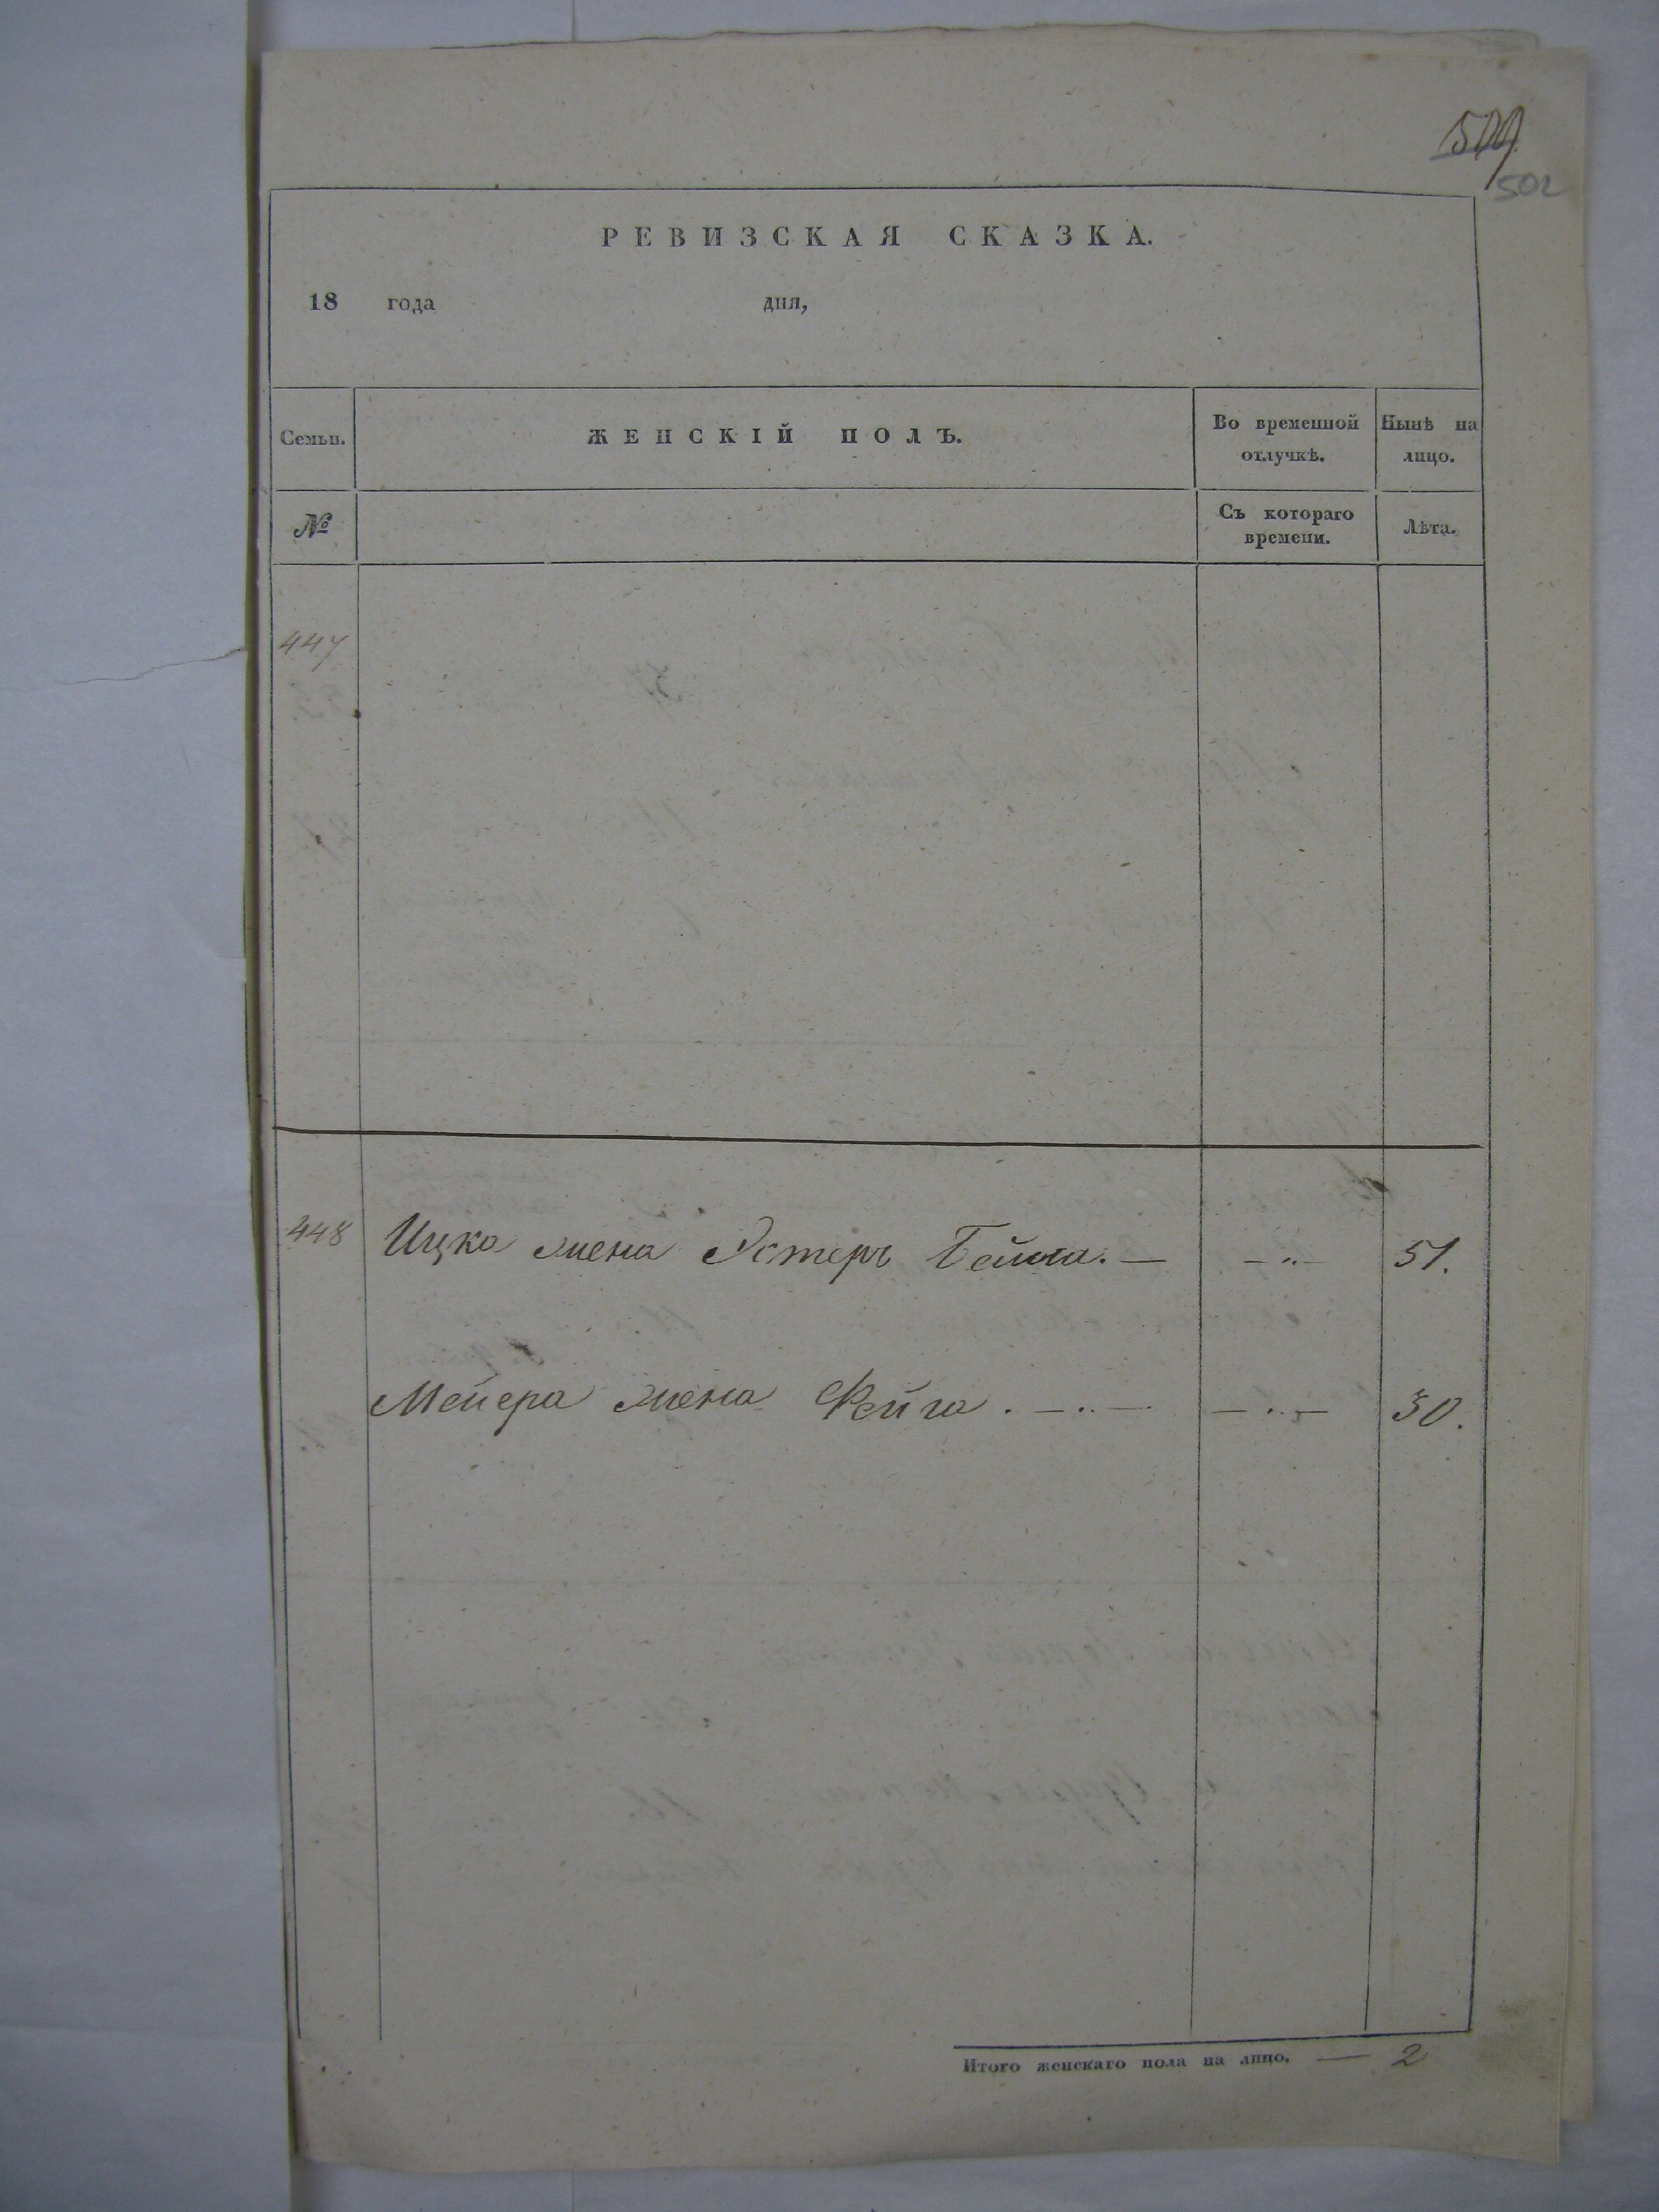 502
РЕВИЗСКАЯ СКАЗКА.
18 года дня,
Семьи. ЖЕНСКІЙ ПОЛЪ. Во временной отлучкѣ. Нынѣ на лицо.
№ Съ котораго времени. Лѣта.
447
448 Ицка жена Эстеръ Бейла. — — „ — 51.
Мейера жена Фейга . — .. — — .. — 30.
Итого женскаго пола на лицо. — 2